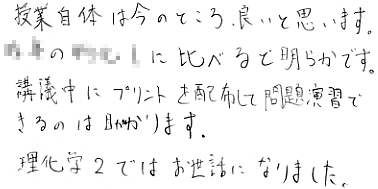 授業自体は今のところ、良いと思います。
の に比べると明らかです。
講義中にプリントを配布して問題演習で
きるのは助かります。
理化学2ではお世話になりました。